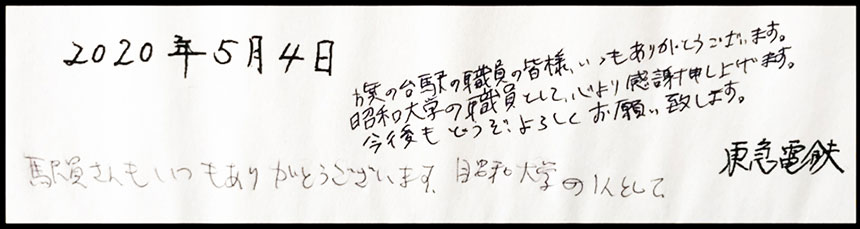 2020年5月4日
旗の台駅の職員の皆様、いつもありがとうございます。
昭和大学の職員として、心より感謝申し上げます。
今後もどうぞよろしくお願い致します。
東急電鉄
駅員さんもいつもありがとうございます。昭和大学の1人として